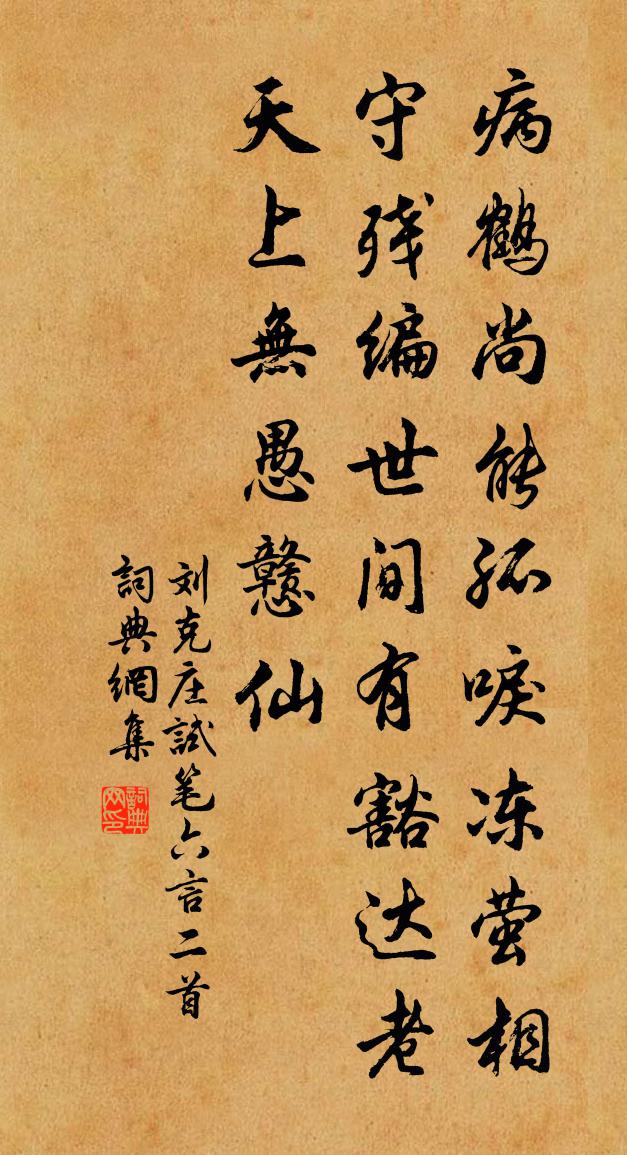 病鹤尚能孤唳冻萤相
守残编世间有豁达老
天上無愚戆仙
刘克庄試笔六言二首
詞典網集
詞典网印